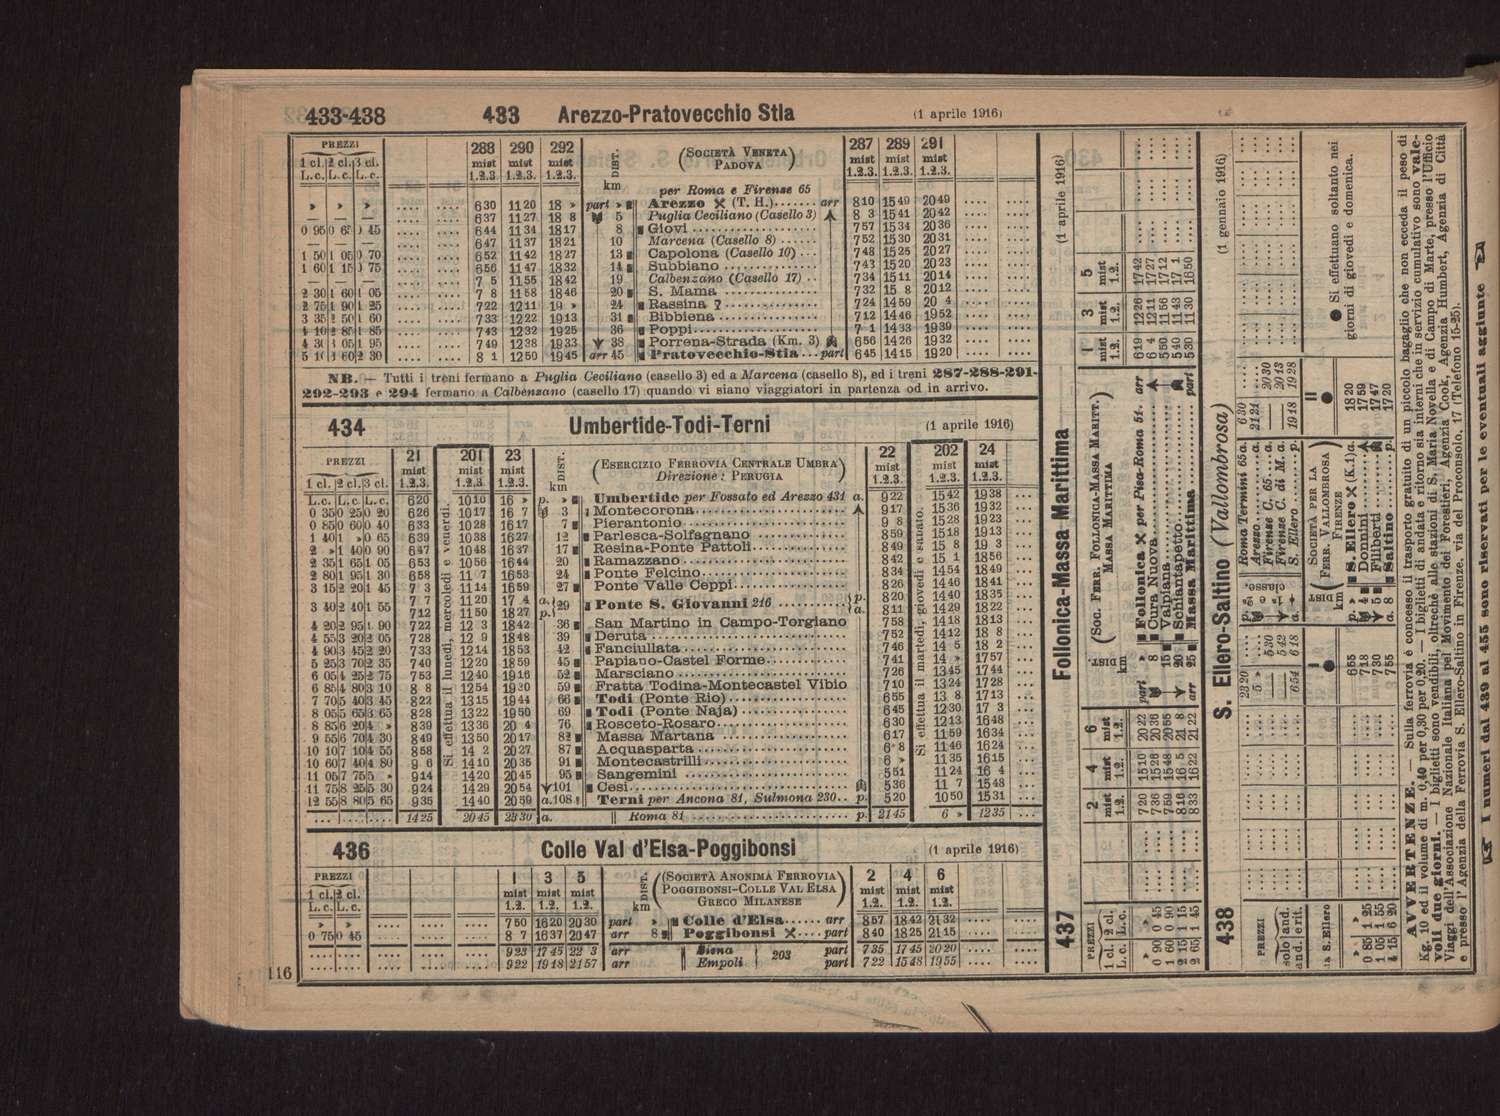 433-438 433 Arezzo-Pratovecchio Stia (1 aprile 1916)
PREZZI 288 290 292 DIST. (SOCIETÀ VENETA PADOVA) 287 289 291
1 cl. 2 cl. 3 cl. mist mist mist mist mist mist
L. c. L. c. L. c. 1.2.3. 1.2.3. 1.2.3. km 1.2.3. 1.2.3. 1.2.3.
per Roma e Firenze 65
» » » 6 30 11 20 18 » part » Arezzo (T. H.) arr 8 10 15 49 20 49
— — — 6 37 11 27 18 8 5 Puglia Ceciliano (Casello 3) 8 3 15 41 20 42
0 95 0 65 0 45 6 44 11 34 18 17 8 Giovi 7 57 15 34 20 36
— — — 6 47 11 37 18 21 10 Marcena (Casello 8) 7 52 15 30 20 31
1 50 1 05 0 70 6 52 11 42 18 27 13 Capolona (Casello 10) 7 48 15 25 20 27
1 60 1 15 0 75 6 56 11 47 18 32 14 Subbiano 7 43 15 20 20 23
— — — 7 5 11 55 18 42 19 Calbenzano (Casello 17) 7 34 15 11 20 14
2 30 1 60 1 05 7 8 11 58 18 46 20 S. Mama 7 32 15 8 20 12
2 75 1 90 1 25 7 22 12 11 19 » 24 Rassina ? 7 24 14 59 20 4
3 35 2 50 1 60 7 33 12 22 19 13 31 Bibbiena 7 12 14 46 19 52
4 10 2 85 1 85 7 43 12 32 19 25 36 Poppi 7 1 14 33 19 39
4 30 3 05 1 95 7 49 12 38 19 33 38 Porrena-Strada (Km. 3) 6 56 14 26 19 32
5 10 3 60 2 30 8 1 12 50 19 45 arr 45 Pratovecchio-Stia part 6 45 14 15 19 20
NB. — Tutti i treni fermano a Puglia Ceciliano (casello 3) ed a Marcena (casello 8), ed i treni 287-288-291-
292-293 e 294 fermano a Calbenzano (casello 17) quando vi siano viaggiatori in partenza od in arrivo.
434 Umbertide-Todi-Terni (1 aprile 1916)
PREZZI 21 201 23 DIST. (ESERCIZIO FERROVIA CENTRALE UMBRA) 22 202 24
mist mist mist Direzione: PERUGIA mist mist mist
1 cl. 2 cl. 3 cl. 1.2.3. 1.2.3. 1.2.3. km 1.2.3. 1.2.3. 1.2.3.
Si effettua il lunedì, mercoledì e venerdì.
Si effettua il martedì, giovedì e sabato.
L. c. L. c. L. c. 6 20 10 10 16 » p. » Umbertide per Fossato ed Arezzo 431 a. 9 22 15 42 19 38
0 35 0 25 0 20 6 26 10 17 16 7 3 Montecorona 9 17 15 36 19 32
0 85 0 60 0 40 6 33 10 28 16 17 7 Pierantonio 9 8 15 28 19 23
1 40 1 » 0 65 6 39 10 38 16 27 12 Parlesca-Solfagnano 8 59 15 18 19 13
2 » 1 40 0 90 6 47 10 48 16 37 17 Resina-Ponte Pattoli 8 49 15 8 19 3
2 35 1 65 1 05 6 53 10 56 16 44 20 Ramazzano 8 42 15 1 18 56
2 80 1 95 1 30 6 58 11 7 16 53 24 Ponte Felcino 8 34 14 54 18 49
3 15 2 20 1 45 7 3 11 14 16 59 27 Ponte Valle Ceppi 8 26 14 46 18 41
7 7 11 20 17 4 a. p. 8 20 14 40 18 35
3 40 2 40 1 55 29 Ponte S. Giovanni 216
7 12 11 50 18 27 p. a. 8 11 14 29 18 22
4 20 2 95 1 90 7 22 12 3 18 42 36 San Martino in Campo-Torgiano 7 58 14 18 18 13
4 55 3 20 2 05 7 28 12 9 18 48 39 Deruta 7 52 14 12 18 8
4 90 3 45 2 20 7 33 12 14 18 53 42 Fanciullata 7 46 14 5 18 2
5 25 3 70 2 35 7 40 12 20 18 59 45 Papiano-Castel Forme 7 41 14 » 17 57
6 05 4 25 2 75 7 53 12 40 19 16 52 Marsciano 7 26 13 45 17 44
6 85 4 80 3 10 8 8 12 54 19 30 59 Fratta Todina-Montecastel Vibio 7 10 13 24 17 28
7 70 5 40 3 45 8 22 13 15 19 44 66 Todi (Ponte Rio) 6 55 13 8 17 13
8 05 5 65 3 65 8 28 13 22 19 50 69 Todi (Ponte Naja) 6 45 12 30 17 3
8 85 6 20 4 » 8 39 13 36 20 4 76 Rosceto-Rosaro 6 30 12 13 16 48
9 55 6 70 4 30 8 49 13 50 20 17 82 Massa Martana 6 17 11 59 16 34
10 10 7 10 4 55 8 58 14 2 20 27 87 Acquasparta 6 8 11 46 16 24
10 60 7 40 4 80 9 6 14 10 20 35 91 Montecastrilli 6 » 11 35 16 15
11 05 7 75 5 » 9 14 14 20 20 45 95 Sangemini 5 51 11 24 16 4
11 75 8 25 5 30 9 24 14 29 20 54 101 Cesi 5 36 11 7 15 48
12 55 8 80 5 65 9 35 14 40 20 59 a. 108 Terni per Ancona 81, Sulmona 230 p. 5 20 10 50 15 31
14 25 20 45 23 30 a. Roma 81 p. 21 45 6 » 12 35
436 Colle Val d'Elsa-Poggibonsi (1 aprile 1916)
PREZZI 1 3 5 DIST. (SOCIETÀ ANONIMA FERROVIA 2 4 6
1 cl. 2 cl. mist mist mist POGGIBONSI-COLLE VAL ELSA mist mist mist
L. c. L. c. 1.2. 1.2. 1.2. km GRECO MILANESE) 1.2. 1.2. 1.2.
» » 7 50 16 20 20 30 part » Colle d'Elsa arr 8 57 18 42 21 32
0 75 0 45 8 7 16 37 20 47 arr 8 Poggibonsi part 8 40 18 25 21 15
9 23 17 45 22 3 arr Siena 203 part 7 35 17 45 20 20
9 22 19 48 21 57 arr Empoli part 7 22 15 48 19 55
116
437 Follonica-Massa Marittima (1 aprile 1916)
PREZZI 2 4 6 DIST. (SOC. FERR. FOLLONICA-MASSA MARITT. 1 3 5
1 cl. 2 cl. mist mist mist MASSA MARITTIMA) mist mist mist
L. c. L. c. 1.2. 1.2. 1.2. km 1.2. 1.2. 1.2.
» » 7 20 15 10 20 22 part » Follonica per Pisa-Roma 51. arr 6 19 12 26 17 42
0 90 0 45 7 36 15 28 20 36 8 Cura Nuova 6 4 12 11 17 27
1 60 0 90 7 59 15 48 20 55 15 Valpiana 5 50 11 56 17 12
2 15 1 15 8 16 16 5 21 8 20 Schiantapetto 5 40 11 43 17 1
2 65 1 45 8 33 16 22 21 22 arr 25 Massa Marittima part 5 30 11 30 16 50
438 S. Ellero-Saltino (Vallombrosa) (1 gennaio 1916)
PREZZI 23 20 p. Roma Termini 65 a. 6 30
solo and. 5 » Arezzo a. 21 21
and. e rit. 5 30 1ª e 2ª classe. Firenze C. 65 a. 20 30
5 42 Firenze C. di M. a. 20 43
6 54 6 18 S. Ellero p. 19 18 19 28
da S. Ellero I DIST. km (SOCIETÀ PER LA FERR. VALLOMBROSA FIRENZE) II
» » 6 55 p. » S. Ellero (K. 1) a. 18 20
0 85 1 25 7 18 4 Donnini 17 59
1 05 1 55 7 30 5 Filiberti 17 47
4 15 6 20 7 55 a. 8 Saltino p. 17 20
● Si effettuano soltanto nei
giorni di giovedì e domenica.
AVVERTENZE. — Sulla ferrovia è concesso il trasporto gratuito di un piccolo bagaglio che non ecceda il peso di
Kg. 10 ed il volume di m. 0,40 per 0,30 per 0,20. — I biglietti di andata e ritorno sia interni che in servizio cumulativo sono vale-
voli due giorni. — I biglietti sono vendibili, oltrechè alle stazioni di S. Maria Novella e di Campo di Marte, presso l'Ufficio
Viaggi dell'Associazione Nazionale Italiana pel Movimento dei Forestieri, Agenzia Cook, Agenzia Humbert, Agenzia di Città
e presso l'Agenzia della Ferrovia S. Ellero-Saltino in Firenze, via del Proconsolo, 17 (Telefono 15-25).
I numeri dal 439 al 455 sono riservati per le eventuali aggiunte